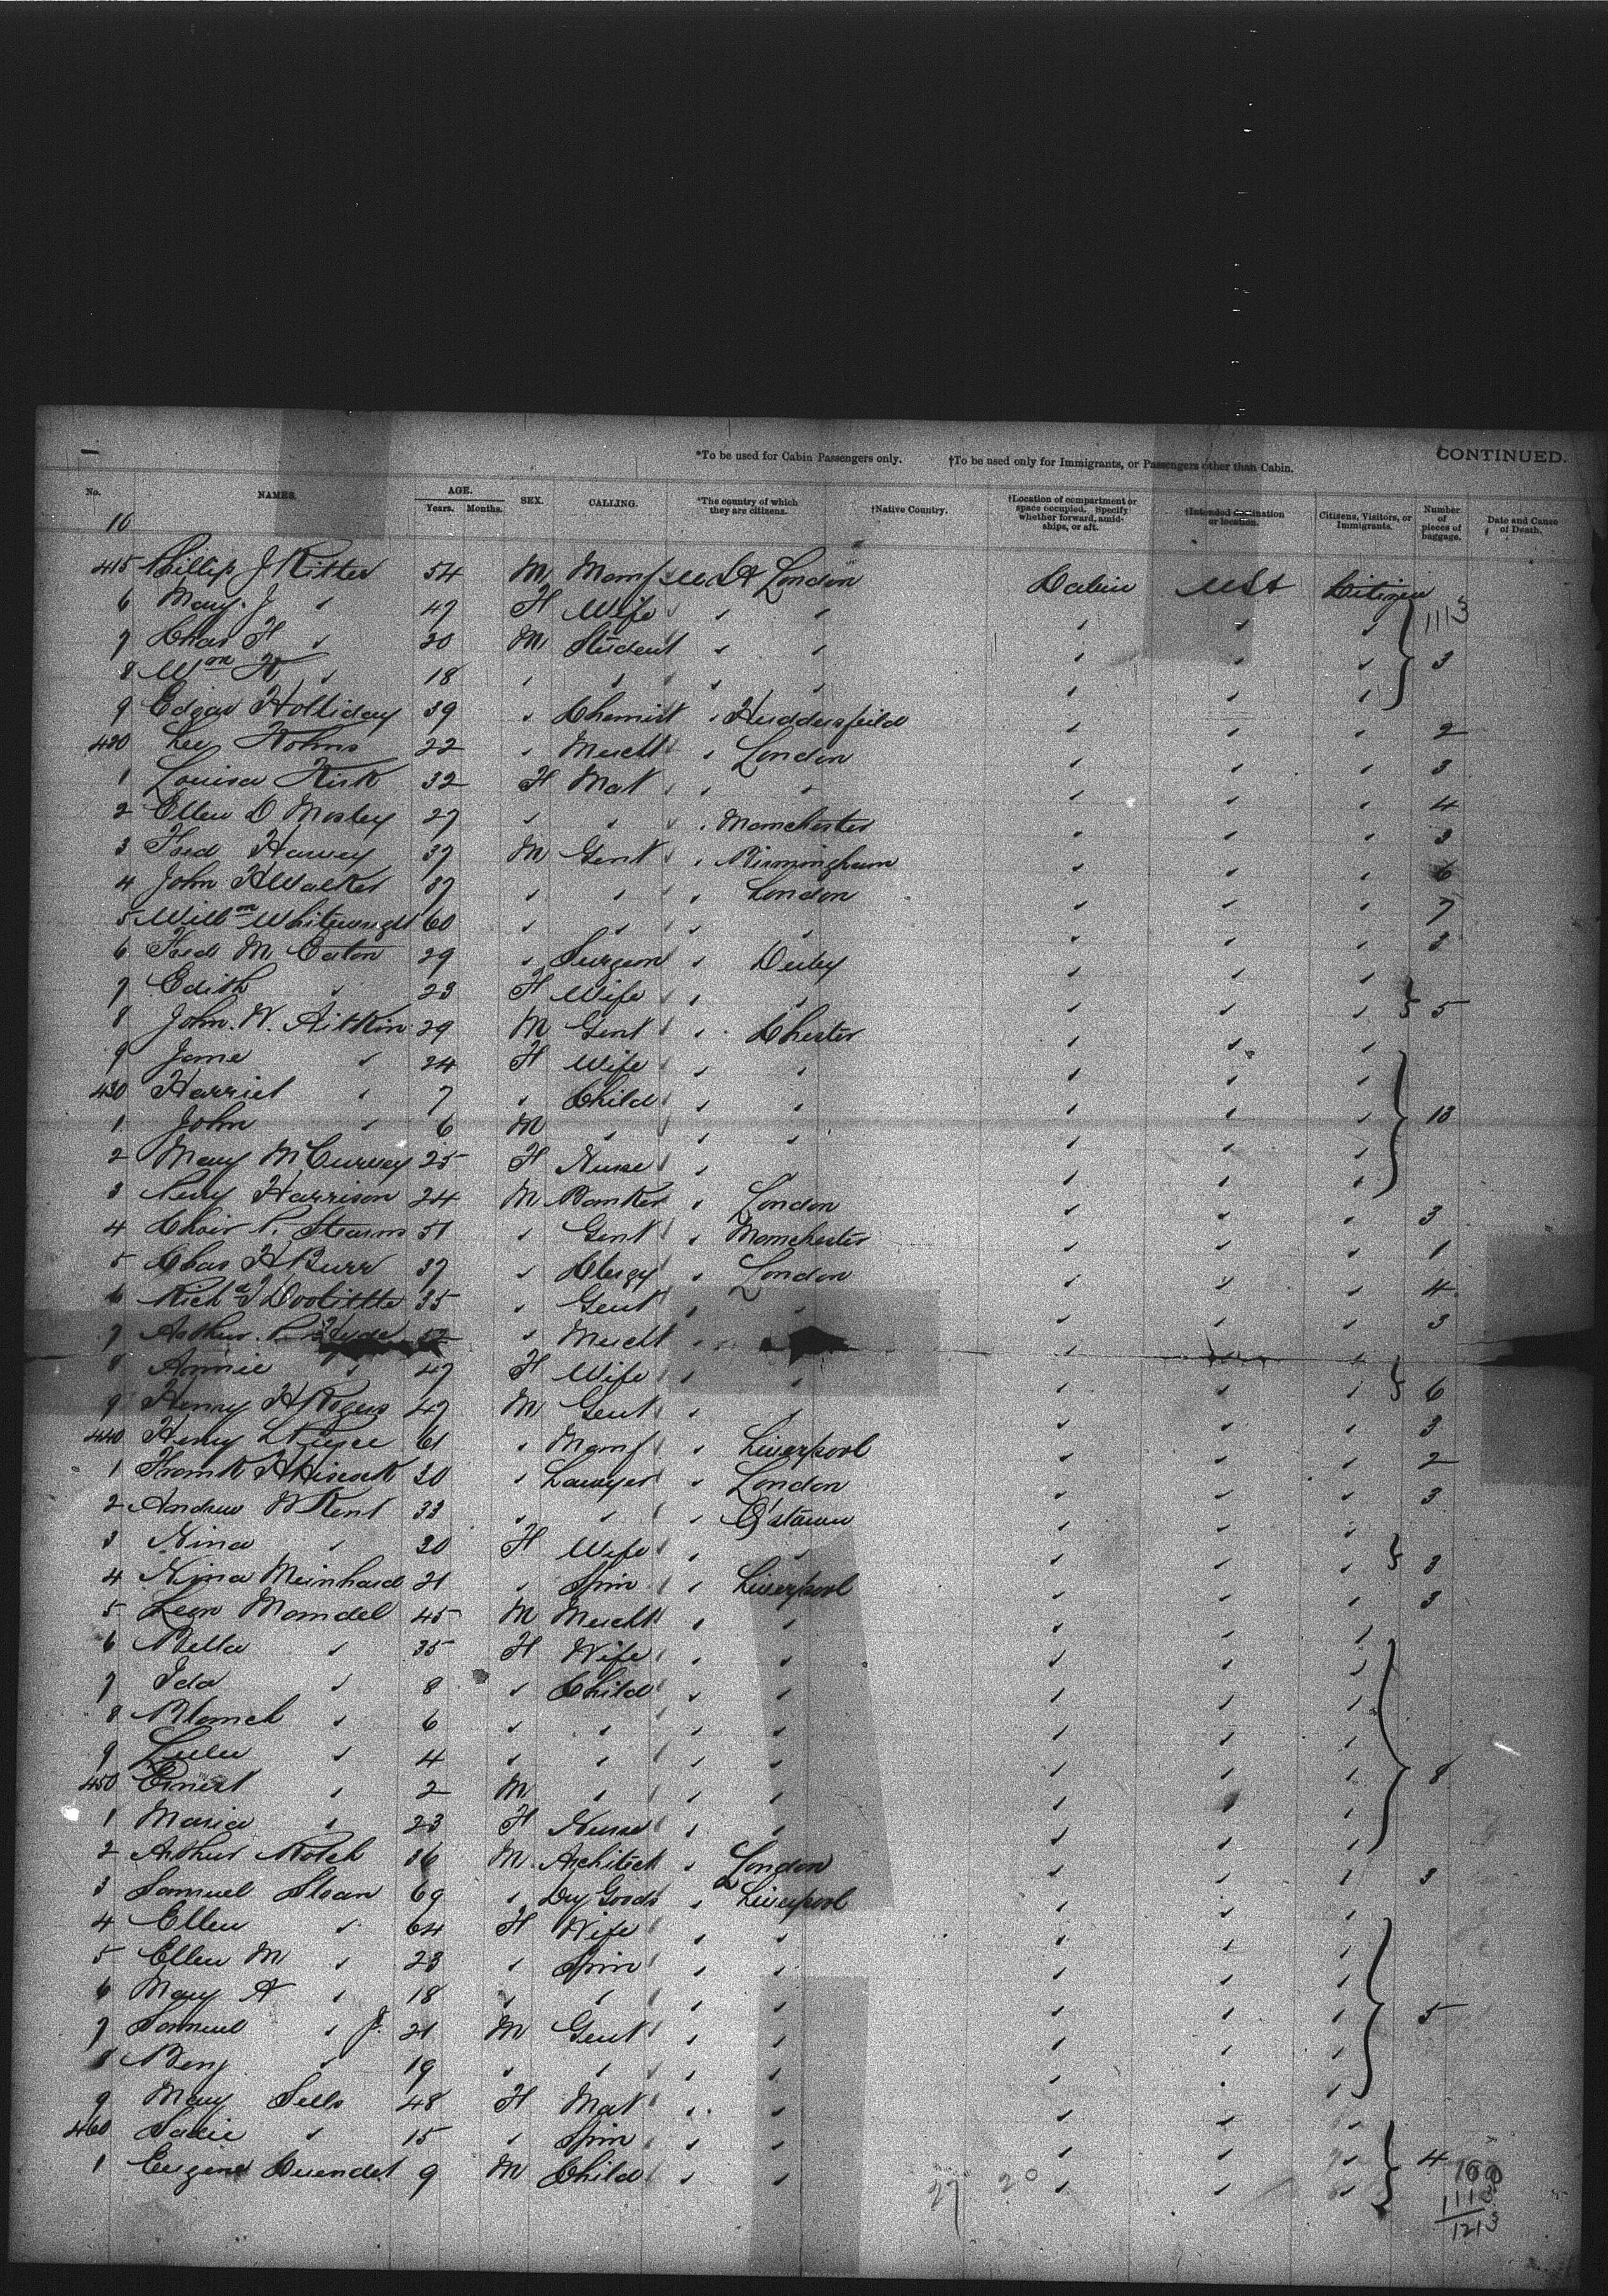 *To be used for Cabin Passengers only. †To be used only for Immigrants, or Passengers other than Cabin. CONTINUED.
No. NAMES. AGE. Years. Months. SEX. CALLING. *The country of which they are citizens. †Native Country. †Location of compartment or space occupied. Specify whether forward, amidships, or aft. †Intended destination or location. Citizens, Visitors, or Immigrants. Number of pieces of baggage. Date and Cause of Death.
10
415 Phillip J Ritter 54 M Manf USA London Cabin USA Citizen
6 Mary J " 47 F Wife " " " " " 1113
7 Chas F " 20 M Student " " " " " 3
8 Wm H " 18 " " " " " " "
9 Edgar Holliday 39 " Chemist " Huddersfeild " " " 2
420 Lee Kohns 22 " Mercht " London " " " 3
1 Louisa Kirk 32 F Mat " " " " " 4
2 Ellen D Mosley 27 " " " Manchester " " " 3
3 Fred Harvey 37 M Gent " Birmingham " " " 6
4 John H Walker 37 " " " London " " " 7
5 Willm Whitewright 60 " " " " " " " 3
6 Fred M Eaton 29 " Surgeon " Derby " " "
7 Edith " 23 F Wife " " " " " 5
8 John W. Aitkin 29 M Gent " Chester " " "
9 Jane " 24 F Wife " " " " "
430 Harriet " 7 " Child " " " " "
1 John " 6 M " " " " " " 13
2 Mary McCurvey 25 F Nurse " " " "
3 Perry Harrison 24 M Banker " London " " " 3
4 P. Stearns 51 " Gent " Manchester " " " 1
5 Chas H Burr 37 " Clergy " London " " " 4
6 Richd T Doolittle 35 " Gent " " " " " 3
7 Arthur P. Hyde 52 " Mercht " " " "
8 Annie " 47 F Wife " " " " " 6
9 Henry H Rogers 47 M Gent " " " " " 3
440 Henry L Pierce 61 " Manf " Liverpool " " " 2
1 Frank H Hiscock 30 " Lawyer " London " " " 3
2 Andrew W Kent 33 " " " Q'stown " " "
3 Nina " 20 F Wife " " " " " 3
4 Nina Meinhard 21 " Spin " Liverpool " " " 3
5 Leon Mandel 45 M Mercht " " " " "
6 Bella " 35 F Wife " " " " "
7 Ida " 8 " Child " " " " "
8 Blanch " 6 " " " " " " "
9 Lulu " 4 " " " " " " "
450 Ernest " 2 M " " " " " " 8
1 Maria " 23 F Nurse " " " " "
2 Arthur Rotch 36 M Architect " London " " " 3
3 Samuel Sloan 69 " Dry Goods " Liverpool " " "
4 Ellen " 64 F Wife " " " " "
5 Ellen M " 23 " Spin " " " " "
6 Mary A " 18 " " " " " " " 5
7 Samuel " J. 21 M Gent " " " " "
8 Benj " 19 " " " " " " "
9 Mary Sells 48 F Mat " " " " "
460 Sadie " 15 " Spin " " " " " 4
1 Eugene Cuendet 9 M Child " " " " "
27 20
100
1113
1213